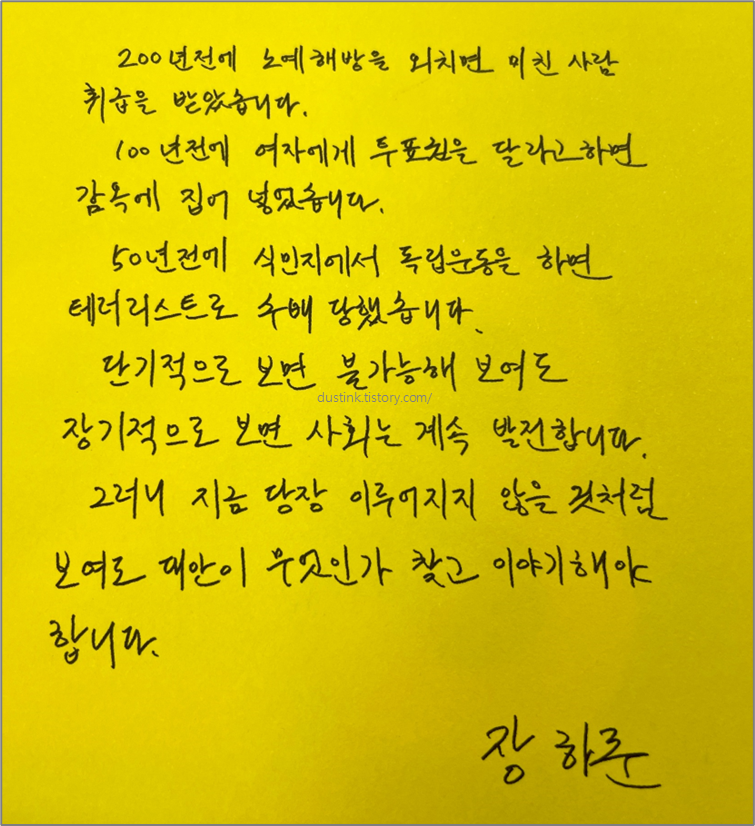 200년전에 노예해방을 외치면 미친 사람
취급을 받았습니다.
100년전에 여자에게 투표권을 달라고하면
감옥에 집어 넣었습니다.
50년전에 식민지에서 독립운동을 하면
테러리스트로 수배 당했습니다.
단기적으로 보면 불가능해 보여도
dustink.tistory.com/
장기적으로 보면 사회는 계속 발전합니다.
그러니 지금 당장 이루어지지 않을 것처럼
보여도 대안이 무엇인가 찾고 이야기해야
합니다.
장하준